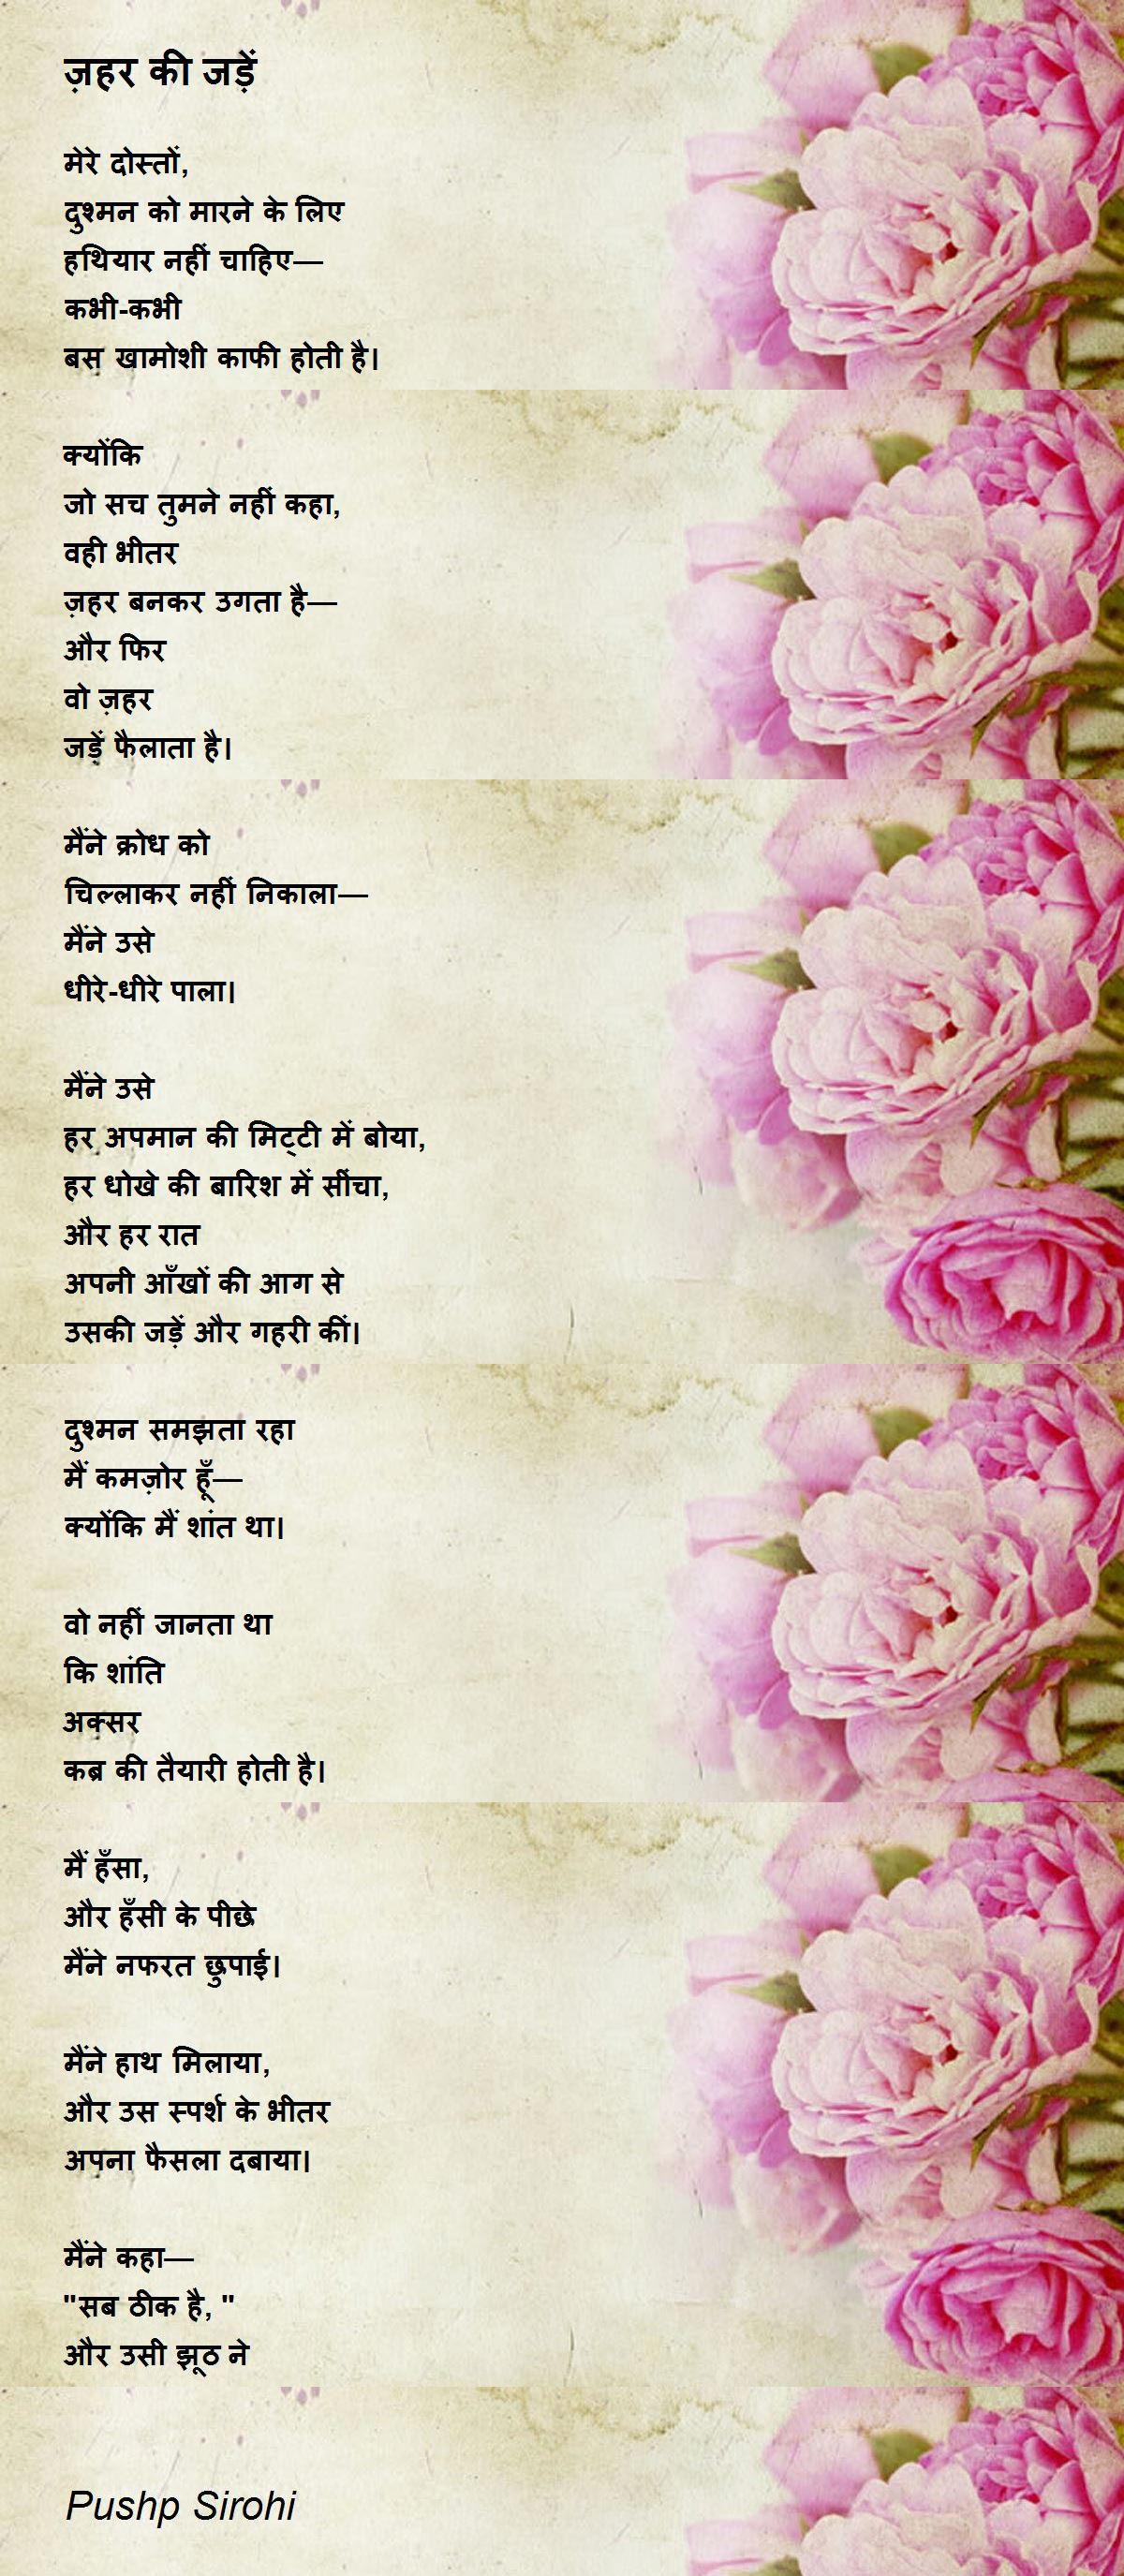 ज़हर की जड़ें
मेरे दोस्तों,
दुश्मन को मारने के लिए
हथियार नहीं चाहिए—
कभी-कभी
बस खामोशी काफी होती है।
क्योंकि
जो सच तुमने नहीं कहा,
वही भीतर
ज़हर बनकर उगता है—
और फिर
वो ज़हर
जड़ें फैलाता है।
मैंने क्रोध को
चिल्लाकर नहीं निकाला—
मैंने उसे
धीरे-धीरे पाला।
मैंने उसे
हर अपमान की मिट्टी में बोया,
हर धोखे की बारिश में सींचा,
और हर रात
अपनी आँखों की आग से
उसकी जड़ें और गहरी कीं।
दुश्मन समझता रहा
मैं कमज़ोर हूँ—
क्योंकि मैं शांत था।
वो नहीं जानता था
कि शांति
अक्सर
कब्र की तैयारी होती है।
मैं हँसा,
और हँसी के पीछे
मैंने नफरत छुपाई।
मैंने हाथ मिलाया,
और उस स्पर्श के भीतर
अपना फैसला दबाया।
मैंने कहा—
"सब ठीक है, "
और उसी झूठ ने
Pushp Sirohi